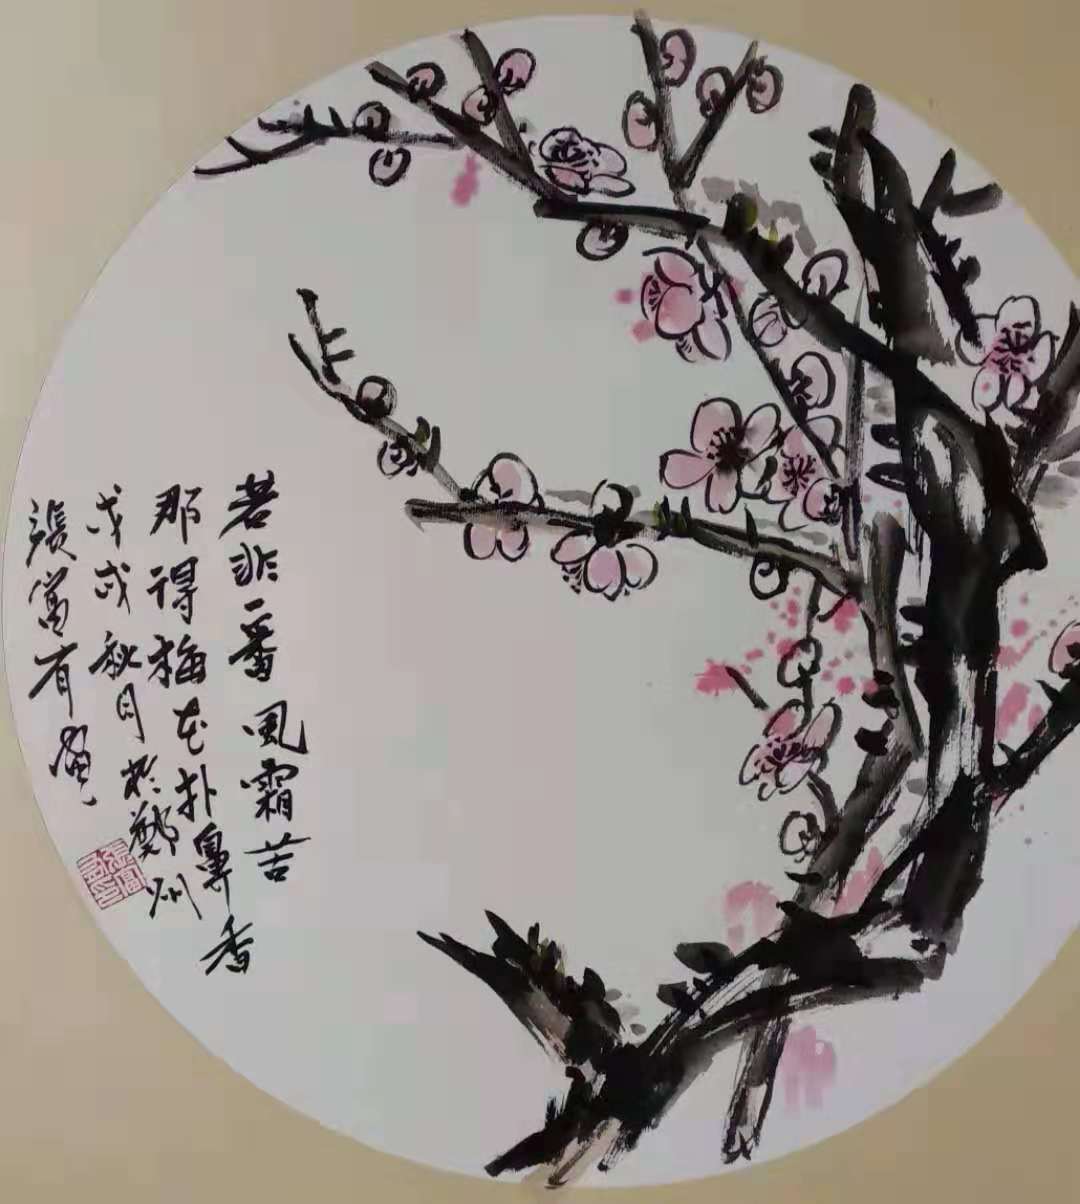 若非一番風霜苦
那得梅花扑鼻香
戊戌秋月於鄭州
張富有畫